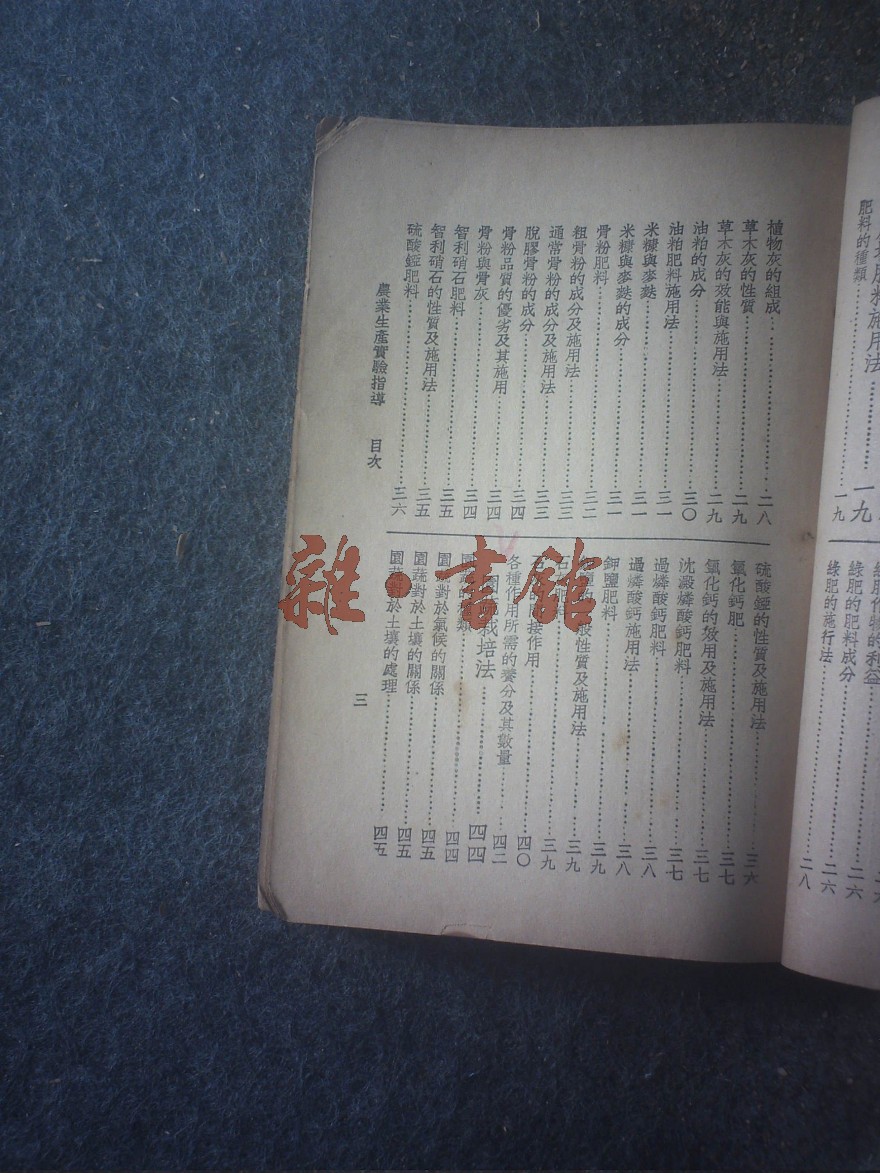 肥料的種類……一九
綠肥的肥料成分……二六
綠肥的施行法……二八
植物灰的組成……二八
草木灰的性質……二九
草木灰的效能與施用法……二九
油粕的成分……三〇
油粕肥料施用法……三一
米糠與麥麩……三一
米糠與麥麩的成分……三一
骨粉肥料……三二
粗骨粉的成分及施用法……三三
通常骨粉的成分及施用法……三三
脫膠骨粉的成分……三四
骨粉品質的優劣及其施用……三四
骨粉與骨灰……三四
智利硝石肥料……三五
智利硝石的性質及施用法……三五
硫酸錏肥料……三六
硫酸錏的性質及施用法……三六
氰化鈣肥……三七
氰化鈣的效用及施用法……三七
沈澱燐酸鈣肥料……三七
過燐酸鈣肥料……三八
過燐酸鈣施用法……三八
鉀鹽肥料……三九
性質及施用法……三九
石……三九
接作用……四〇
各種作用所需的養分及其數量……四二
栽培法……四四
園蔬的種類……四四
園蔬對於氣候的關係……四五
園蔬對於土壤的關係……四五
園蔬對於土壤的處理……四五
農業生產實驗指導 目次
三
雜·書館